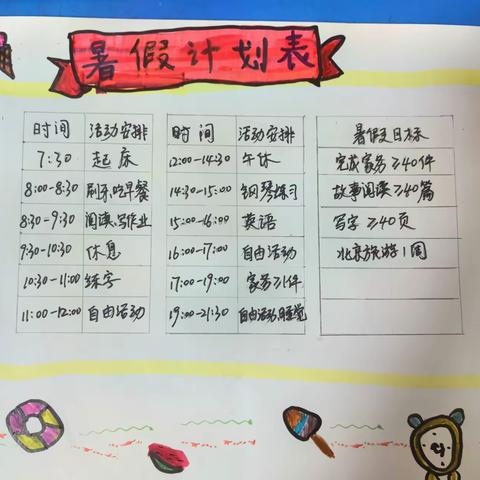 暑假计划表
时间 活动安排
7:30 起床
8:00-8:30 刷牙、吃早餐
8:30-9:30 阅读、写作业
9:30-10:30 休息
10:30-11:00 练字
11:00-12:00 自由活动
时间 活动安排
12:00-14:30 午休
14:30-15:00 钢琴练习
15:00-16:00 英语
16:00-17:00 自由活动
17:00-19:00 家务≥1件
19:00-21:30 自由活动、睡觉
暑假目标
完成家务≥40件
故事阅读≥40篇
写字≥40页
北京旅游1周